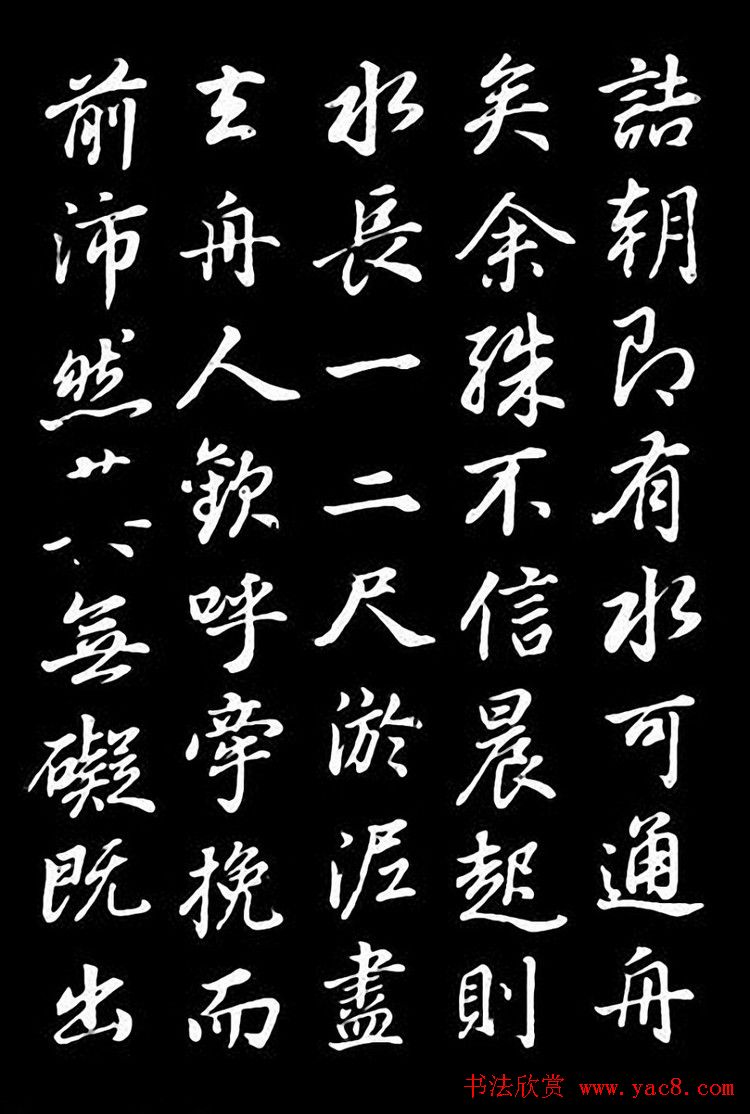 詰朝即有水可通舟
矣余殊不信晨起則
水長一二尺淤泥盡
去舟人歡呼牽挽而
前沛然廿一八無礙既出
书法欣赏 www.yac8.com